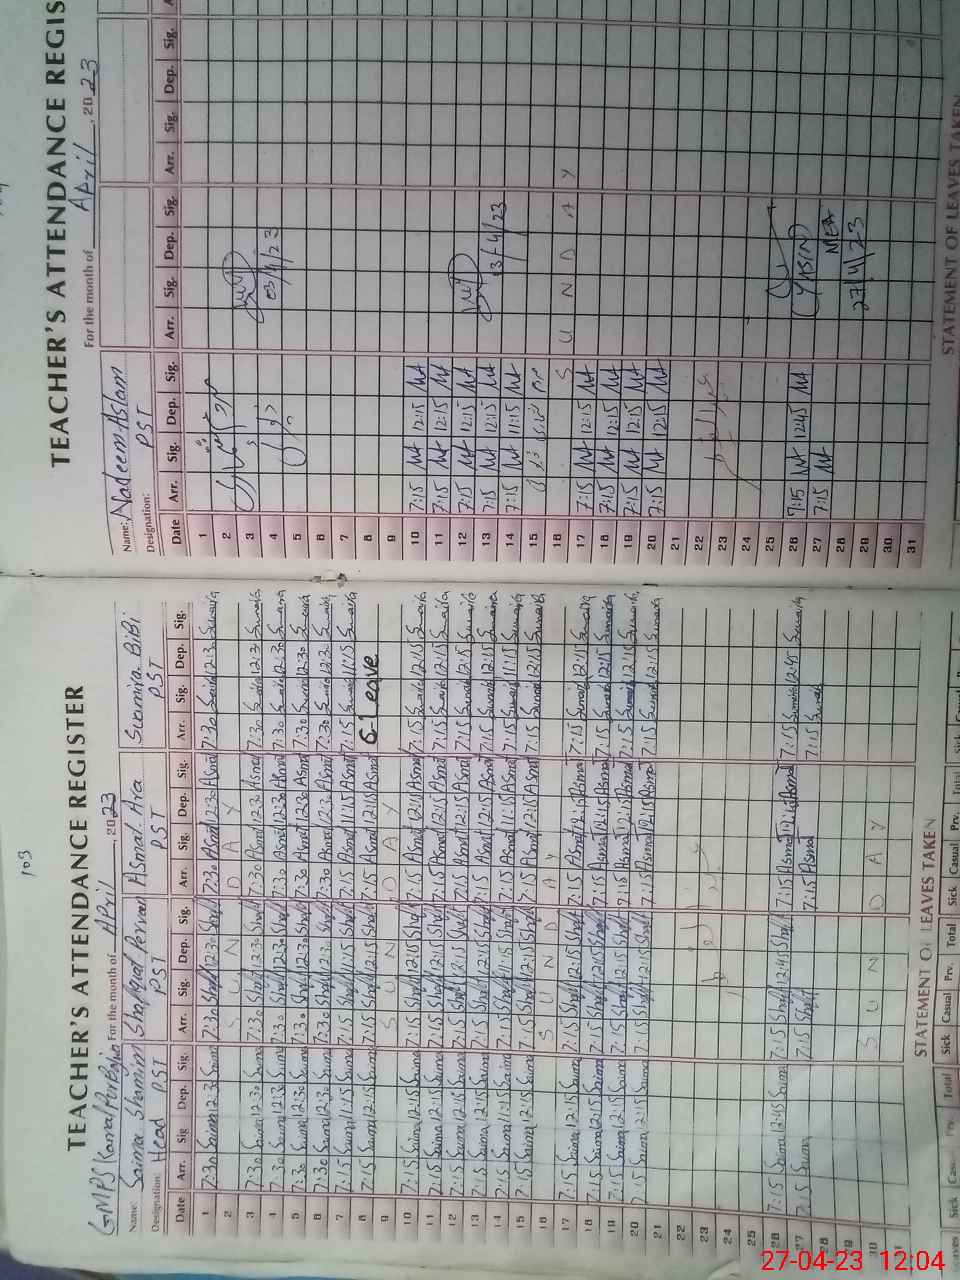 109
TEACHER'S ATTENDANCE REGISTER
For the month of April, 2023
Name: Saima Shamim
Asmat Ara
Sumaira BiBi
Designation: Head PST
PST
PST
PST
Date Arr. Sig Dep. Sig. Arr. Sig. Dep. Sig. Arr. Sig. Dep. Sig. Arr. Sig. Dep. Sig.
1 7:30 Saima 12:30 Saima 7:30 Shaf 12:30 Shaf 7:30 Asmat 12:30 Asmat 7:30 Sumaira 12:30 Sumaira
2 S U N D A Y
3 7:30 Saima 12:30 Saima 7:30 Shaf 12:30 Shaf 7:30 Asmat 12:30 Asmat 7:30 Sumaira 12:30 Sumaira
4 7:30 Saima 12:30 Saima 7:30 Shaf 12:30 Shaf 7:30 Asmat 12:30 Asmat 7:30 Sumaira 12:30 Sumaira
5 7:30 Saima 12:30 Saima 7:30 Shaf 12:30 Shaf 7:30 Asmat 12:30 Asmat 7:30 Sumaira 12:30 Sumaira
6 7:30 Saima 12:30 Saima 7:30 Shaf 12:30 Shaf 7:30 Asmat 12:30 Asmat 7:30 Sumaira 12:30 Sumaira
7 7:15 Saima 11:15 Saima 7:15 Shaf 11:15 Shaf 7:15 Asmat 11:15 Asmat 7:15 Sumaira 11:15 Sumaira
8 7:15 Saima 12:15 Saima 7:15 Shaf 12:15 Shaf 7:15 Asmat 12:15 Asmat C-Leave
9 S U N D A Y
10 7:15 Saima 12:15 Saima 7:15 Shaf 12:15 Shaf 7:15 Asmat 12:15 Asmat 7:15 Sumaira 12:15 Sumaira
11 7:15 Saima 12:15 Saima 7:15 Shaf 12:15 Shaf 7:15 Asmat 12:15 Asmat 7:15 Sumaira 12:15 Sumaira
12 7:15 Saima 12:15 Saima 7:15 Shaf 12:15 Shaf 7:15 Asmat 12:15 Asmat 7:15 Sumaira 12:15 Sumaira
13 7:15 Saima 12:15 Saima 7:15 Shaf 12:15 Shaf 7:15 Asmat 12:15 Asmat 7:15 Sumaira 12:15 Sumaira
14 7:15 Saima 11:15 Saima 7:15 Shaf 11:15 Shaf 7:15 Asmat 11:15 Asmat 7:15 Sumaira 11:15 Sumaira
15 7:15 Saima 12:15 Saima 7:15 Shaf 12:15 Shaf 7:15 Asmat 12:15 Asmat 7:15 Sumaira 12:15 Sumaira
16 S U N D A Y
17 7:15 Saima 12:15 Saima 7:15 Shaf 12:15 Shaf 7:15 Asmat 12:15 Asmat 7:15 Sumaira 12:15 Sumaira
18 7:15 Saima 12:15 Saima 7:15 Shaf 12:15 Shaf 7:15 Asmat 12:15 Asmat 7:15 Sumaira 12:15 Sumaira
19 7:15 Saima 12:15 Saima 7:15 Shaf 12:15 Shaf 7:15 Asmat 12:15 Asmat 7:15 Sumaira 12:15 Sumaira
20 7:15 Saima 12:15 Saima 7:15 Shaf 12:15 Shaf 7:15 Asmat 12:15 Asmat 7:15 Sumaira 12:15 Sumaira
21
22
23
24
25
26 7:15 Saima 12:45 Saima 7:15 Shaf 12:45 Shaf 7:15 Asmat 12:45 Asmat 7:15 Sumaira 12:45 Sumaira
27 7:15 Saima 7:15 Shaf 7:15 Asmat 7:15 Sumaira
28
29
30 S U N D A Y
31
STATEMENT OF LEAVES TAKEN
Sick Casual Prv. Total Sick Casual Prv. Total
TEACHER'S ATTENDANCE REGIS
For the month of April, 2023
Name: Nadeem Aslam
Designation: PST
Date Arr. Sig. Dep. Sig. Arr. Sig. Dep. Sig. Arr. Sig. Dep. Sig.
1
2
3
4 03/4/23
5
6
7
8
9
10 7:15 12:15
11 7:15 12:15
12 7:15 12:15
13 7:15 12:15 13/4/23
14 7:15 11:15
15
16 S U N D A Y
17 7:15 12:15
18 7:15 12:15
19 7:15 12:15
20 7:15 12:15
21
22
23
24
25
26 7:15 12:45
27 7:15 (YASIN)
28 MEA
29 27/4/23
30
31
STATEMENT OF LEAVES TAKEN
27-04-23 12:04